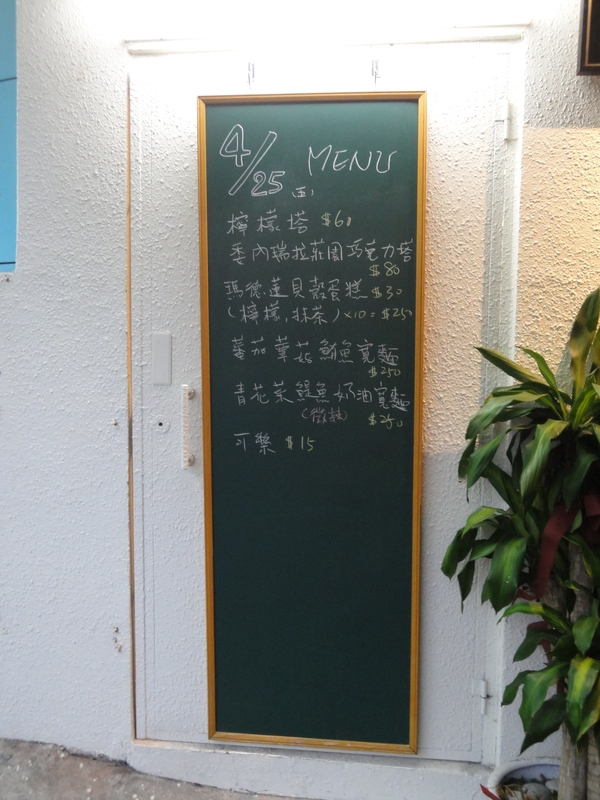 4/25 MENU
(五)
檸檬塔 $60
委內瑞拉莊園巧克力塔
$80
瑪德蓮貝殼蛋糕 $30
(檸檬,抹茶) x10=$250
蕃茄蘑菇鮪魚寬麵
$250
青花菜鯷魚奶油寬麵
(微辣)
$250
可樂 $15